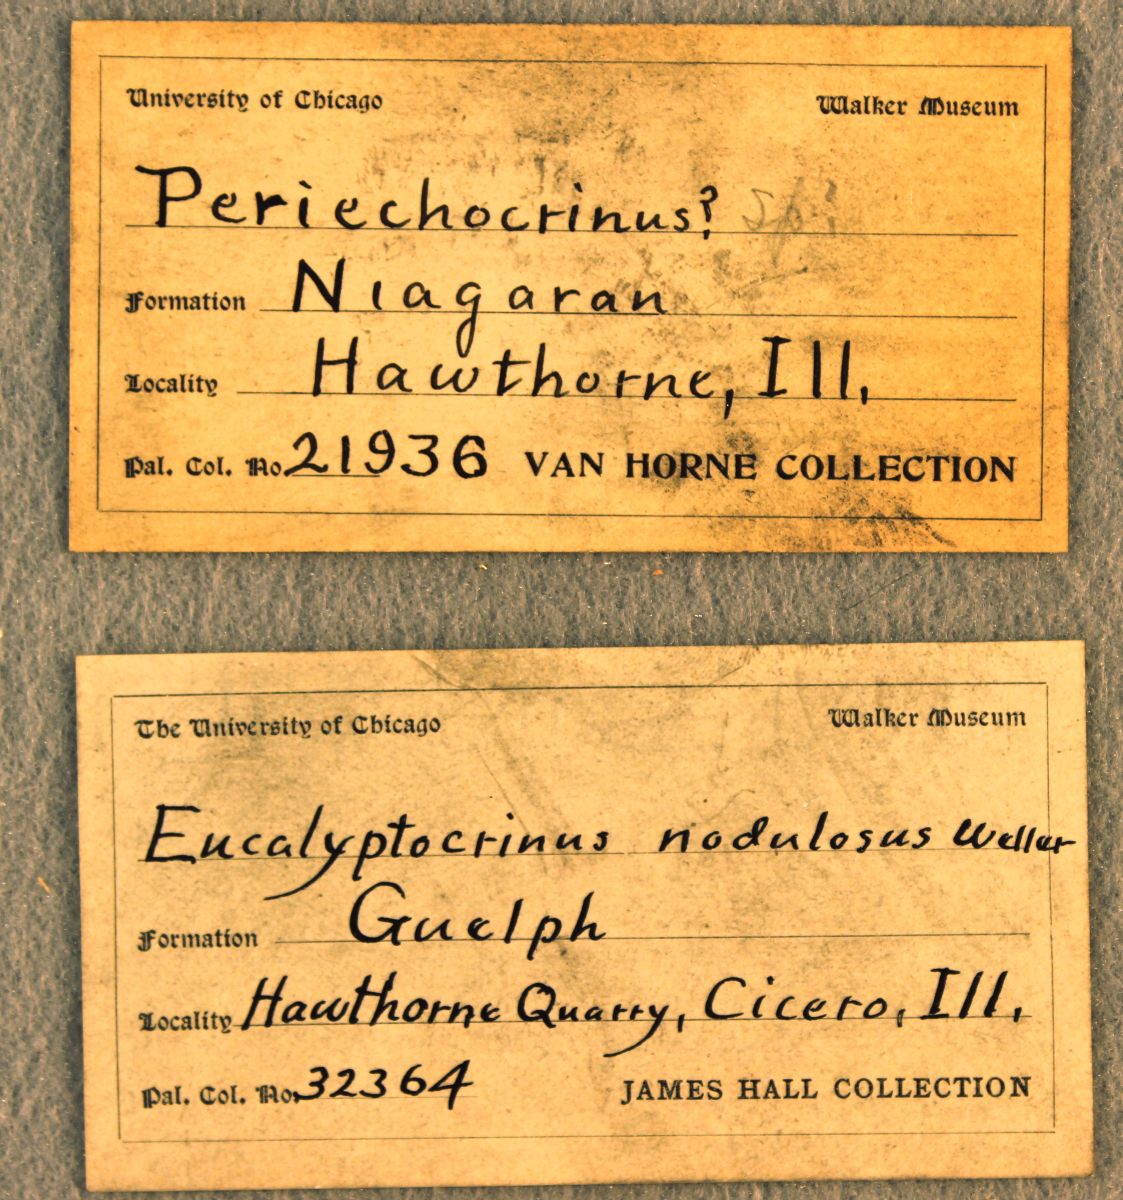 University of Chicago Walker Museum
Periechocrinus?
Formation Niagaran
Locality Hawthorne, Ill,
Pal. Col. No. 21936 VAN HORNE COLLECTION
The University of Chicago Walker Museum
Eucalyptocrinus nodulosus Weller
Formation Guelph
Locality Hawthorne Quarry, Cicero, Ill,
Pal. Col. No. 32364 JAMES HALL COLLECTION